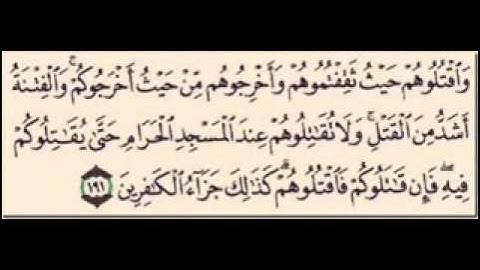 وَاقْتُلُوهُمْ حَيْثُ ثَقِفْتُمُوهُمْ وَأَخْرِجُوهُم مِّنْ حَيْثُ أَخْرَجُوكُمْ ۚ وَالْفِتْنَةُ
أَشَدُّ مِنَ الْقَتْلِ ۚ وَلَا تُقَاتِلُوهُمْ عِندَ الْمَسْجِدِ الْحَرَامِ حَتَّىٰ يُقَاتِلُوكُمْ
فِيهِ ۖ فَإِن قَاتَلُوكُمْ فَاقْتُلُوهُمْ ۗ كَذَٰلِكَ جَزَاءُ الْكَافِرِينَ ١٩١